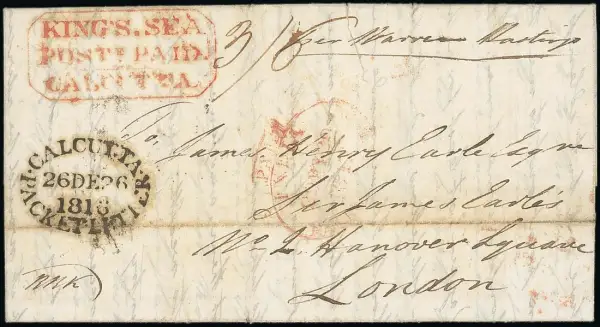 KING'S.SEA
POSTE PAID.
CALCUTTA.
3/6
per Warren Hastings
CALCUTTA
26DE26
1816
PACKET LETTER
To,
James Henry Earle Esqre
Sir James Earle's
No 2. Hanover Square
London